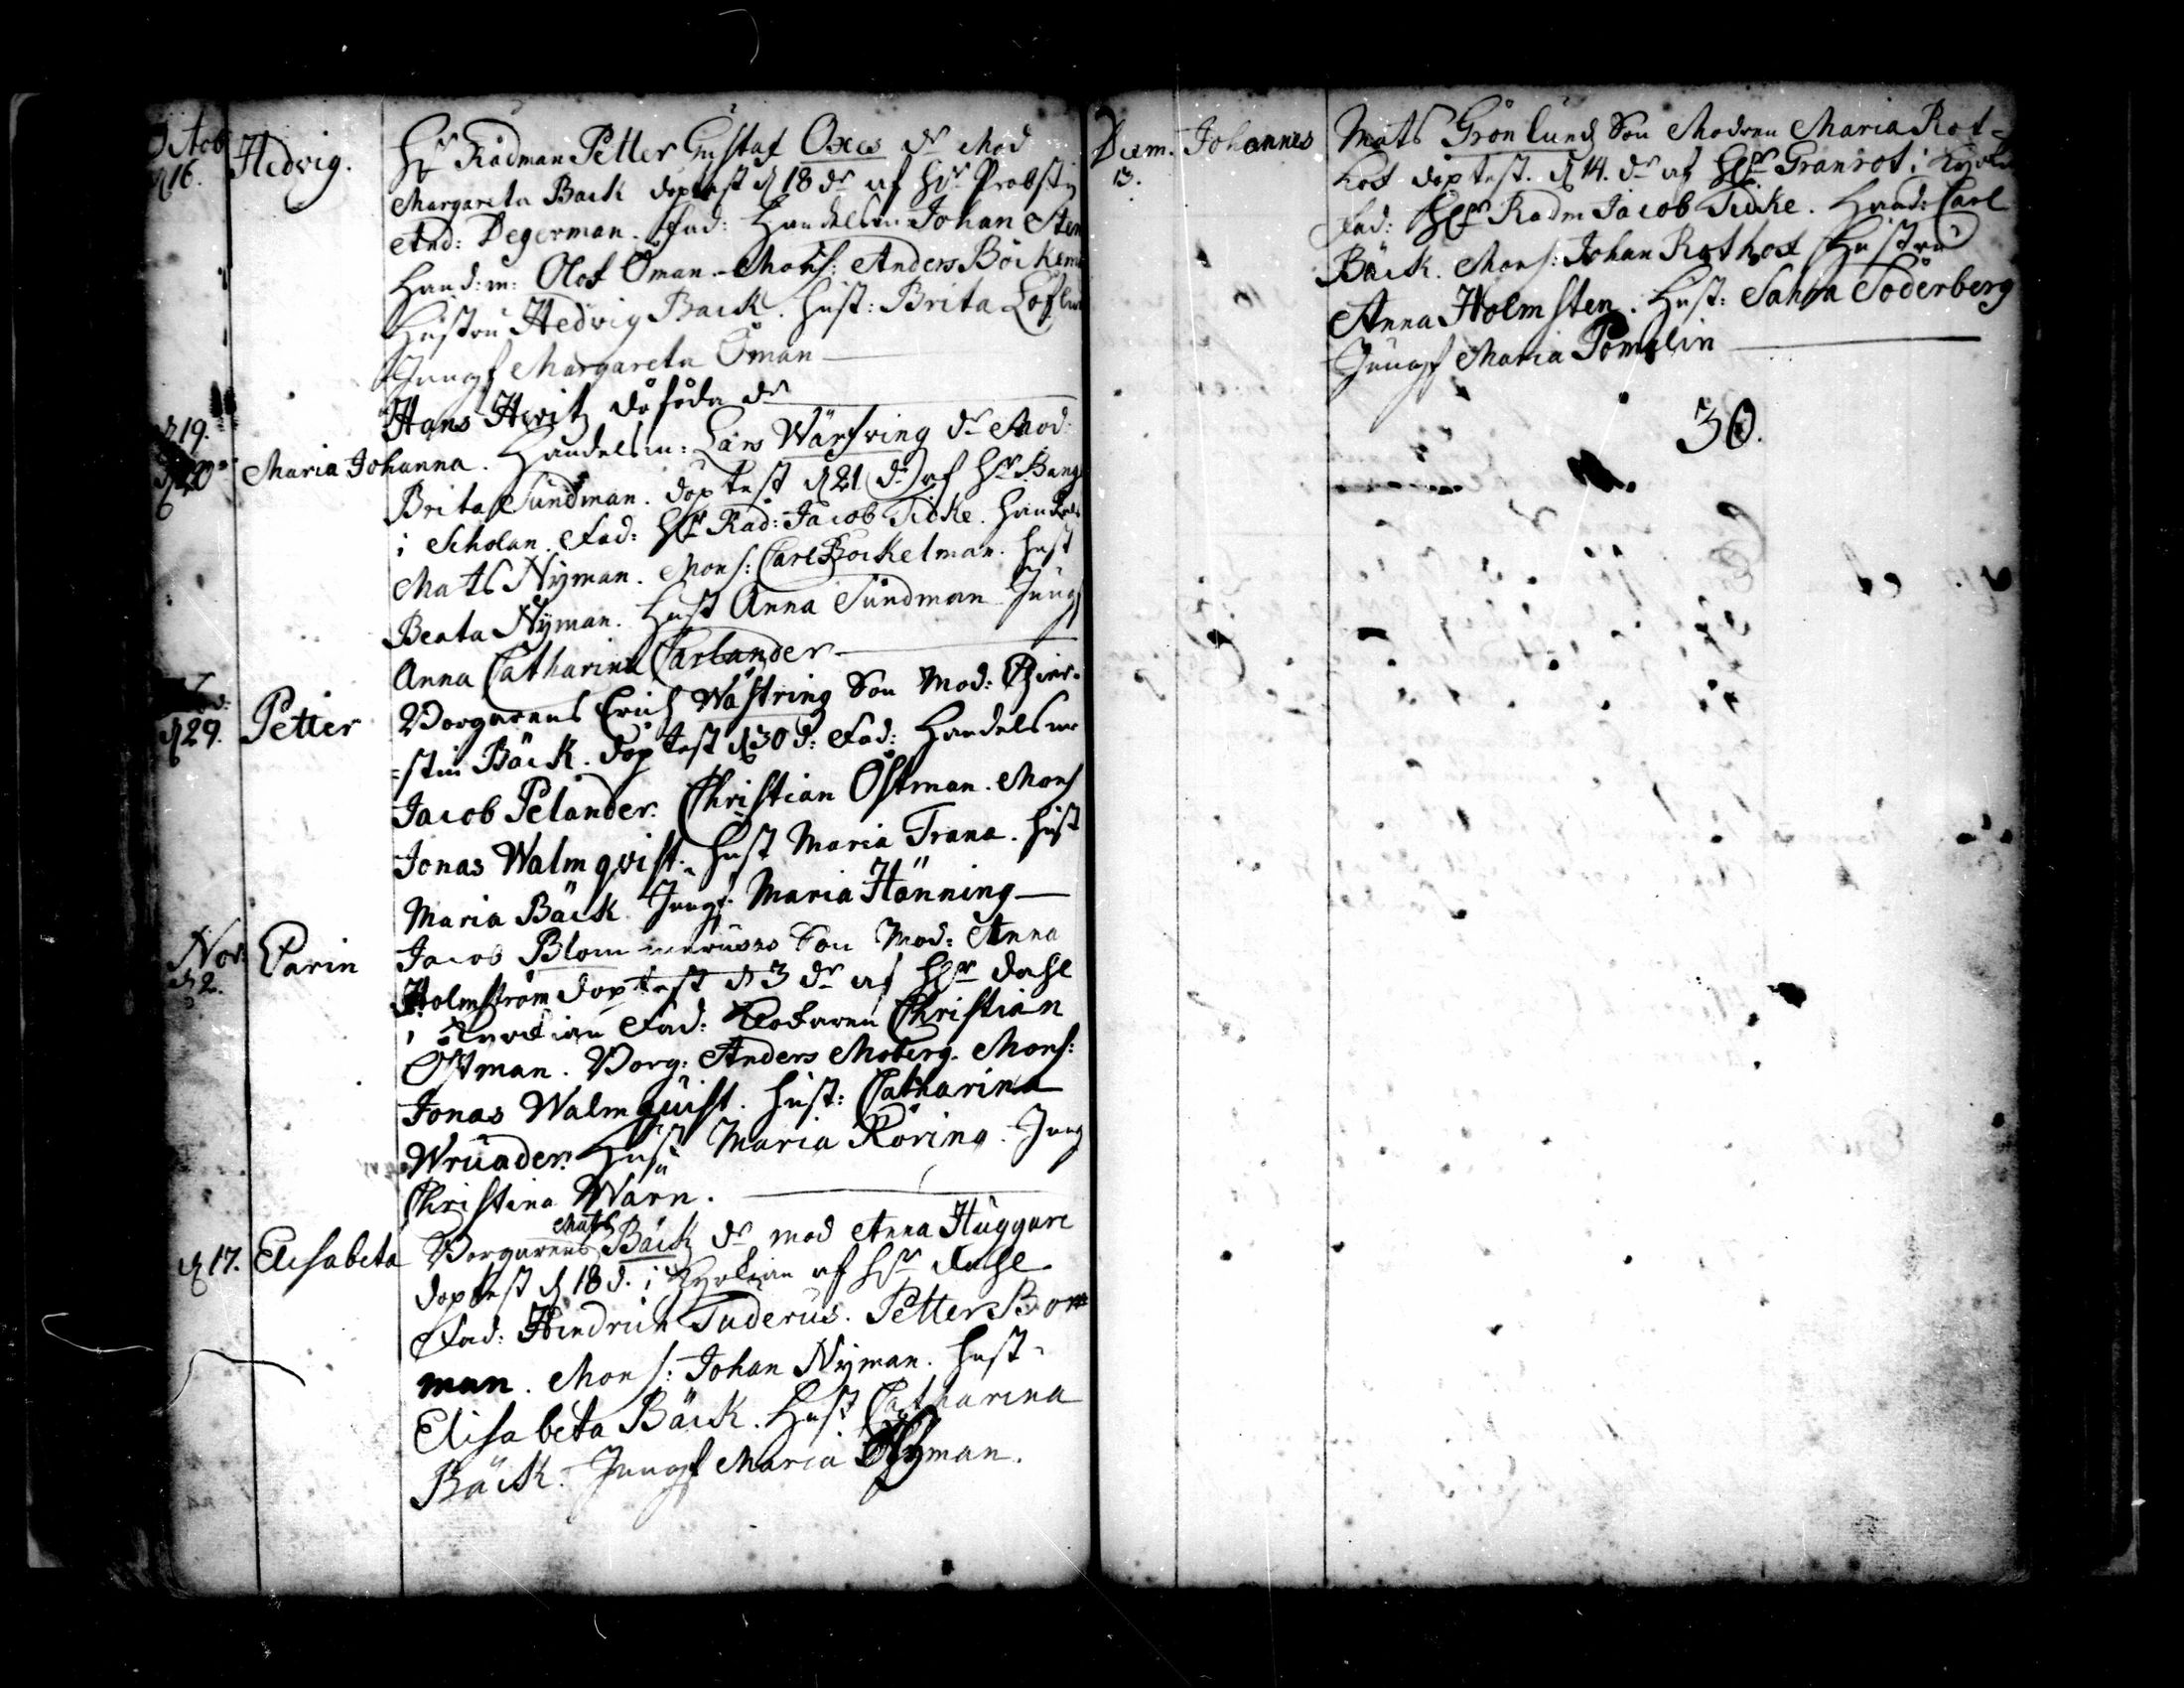 Octob
d 16. Hedvig. Hr Rådman Petter Gustaf Oxes dr Mod
Margareta Back döptest d 18 dr af Hr Probst
And: Degerman. Fad: Handelsm: Johan Sten
Hand:m: Olof Öman. Mons: Anders Böckem
Hustru Hedvig Back. Hust: Brita Lof
Jungf Margareta Öman
d 19. Hans Hvitz dödföda dr
d 20 Maria Johanna. Handelsm: Lars Wärfving dr Mod:
Brita Sundman. döptest d 21 dr af Hr Bang
i Scholan. Fad: Hr Råd: Jacob Tidke. Handels
Mats Nyman. Mons: Carl Bockelman. Hust
Beata Nyman. Hust Anna Sundman Jungf
Anna Catharina Carlander
d 29. Petter Borgarens Erich Wästring Son Mod: Chier-
=stin Bäck. döptest d 30 d: Fad: Handelsm
Jacob Pelander. Christian Östman. Mons
Jonas Walmqvist. Hust Maria Trana. Hust
Maria Bäck Jungf. Maria Hänning
Nov:
d 2. Carin Jacob Blom Son Mod: Anna
Holmström döptest d 3 dr af Hr Dahl
i Fad: Christian
Östman. Borg: Anders Moberg. Mons:
Jonas Walmquist. Hust: Catharina
Wruader. Hust Maria Röring. Jung
Christina Wärn.
d 17. Elisabeta Borgarens Mats Bäck dr mod Anna Huggare
döptest d 18 d. i Kyrkian af Hr Dahl
Fad: Hindrich Tuderus. Petter Bo
man. Mons: Johan Nyman. Hust
Elisabeta Bäck. Hust Catharina
Bäck. Jungf Maria Nyman.
Decem. Johannes Mats Grönlunds Son Modren Maria Rot=
13. kost döptest. d 14. dr af Hr Granrot i Kyrk
Fad: Hr Rådm Jacob Tidke. Hand: Carl
Bäck. Mons: Johan Rothost Hustru
Anna Holmsten. Hust: Sanna Söderberg
Jungf Maria Pomelin
30.